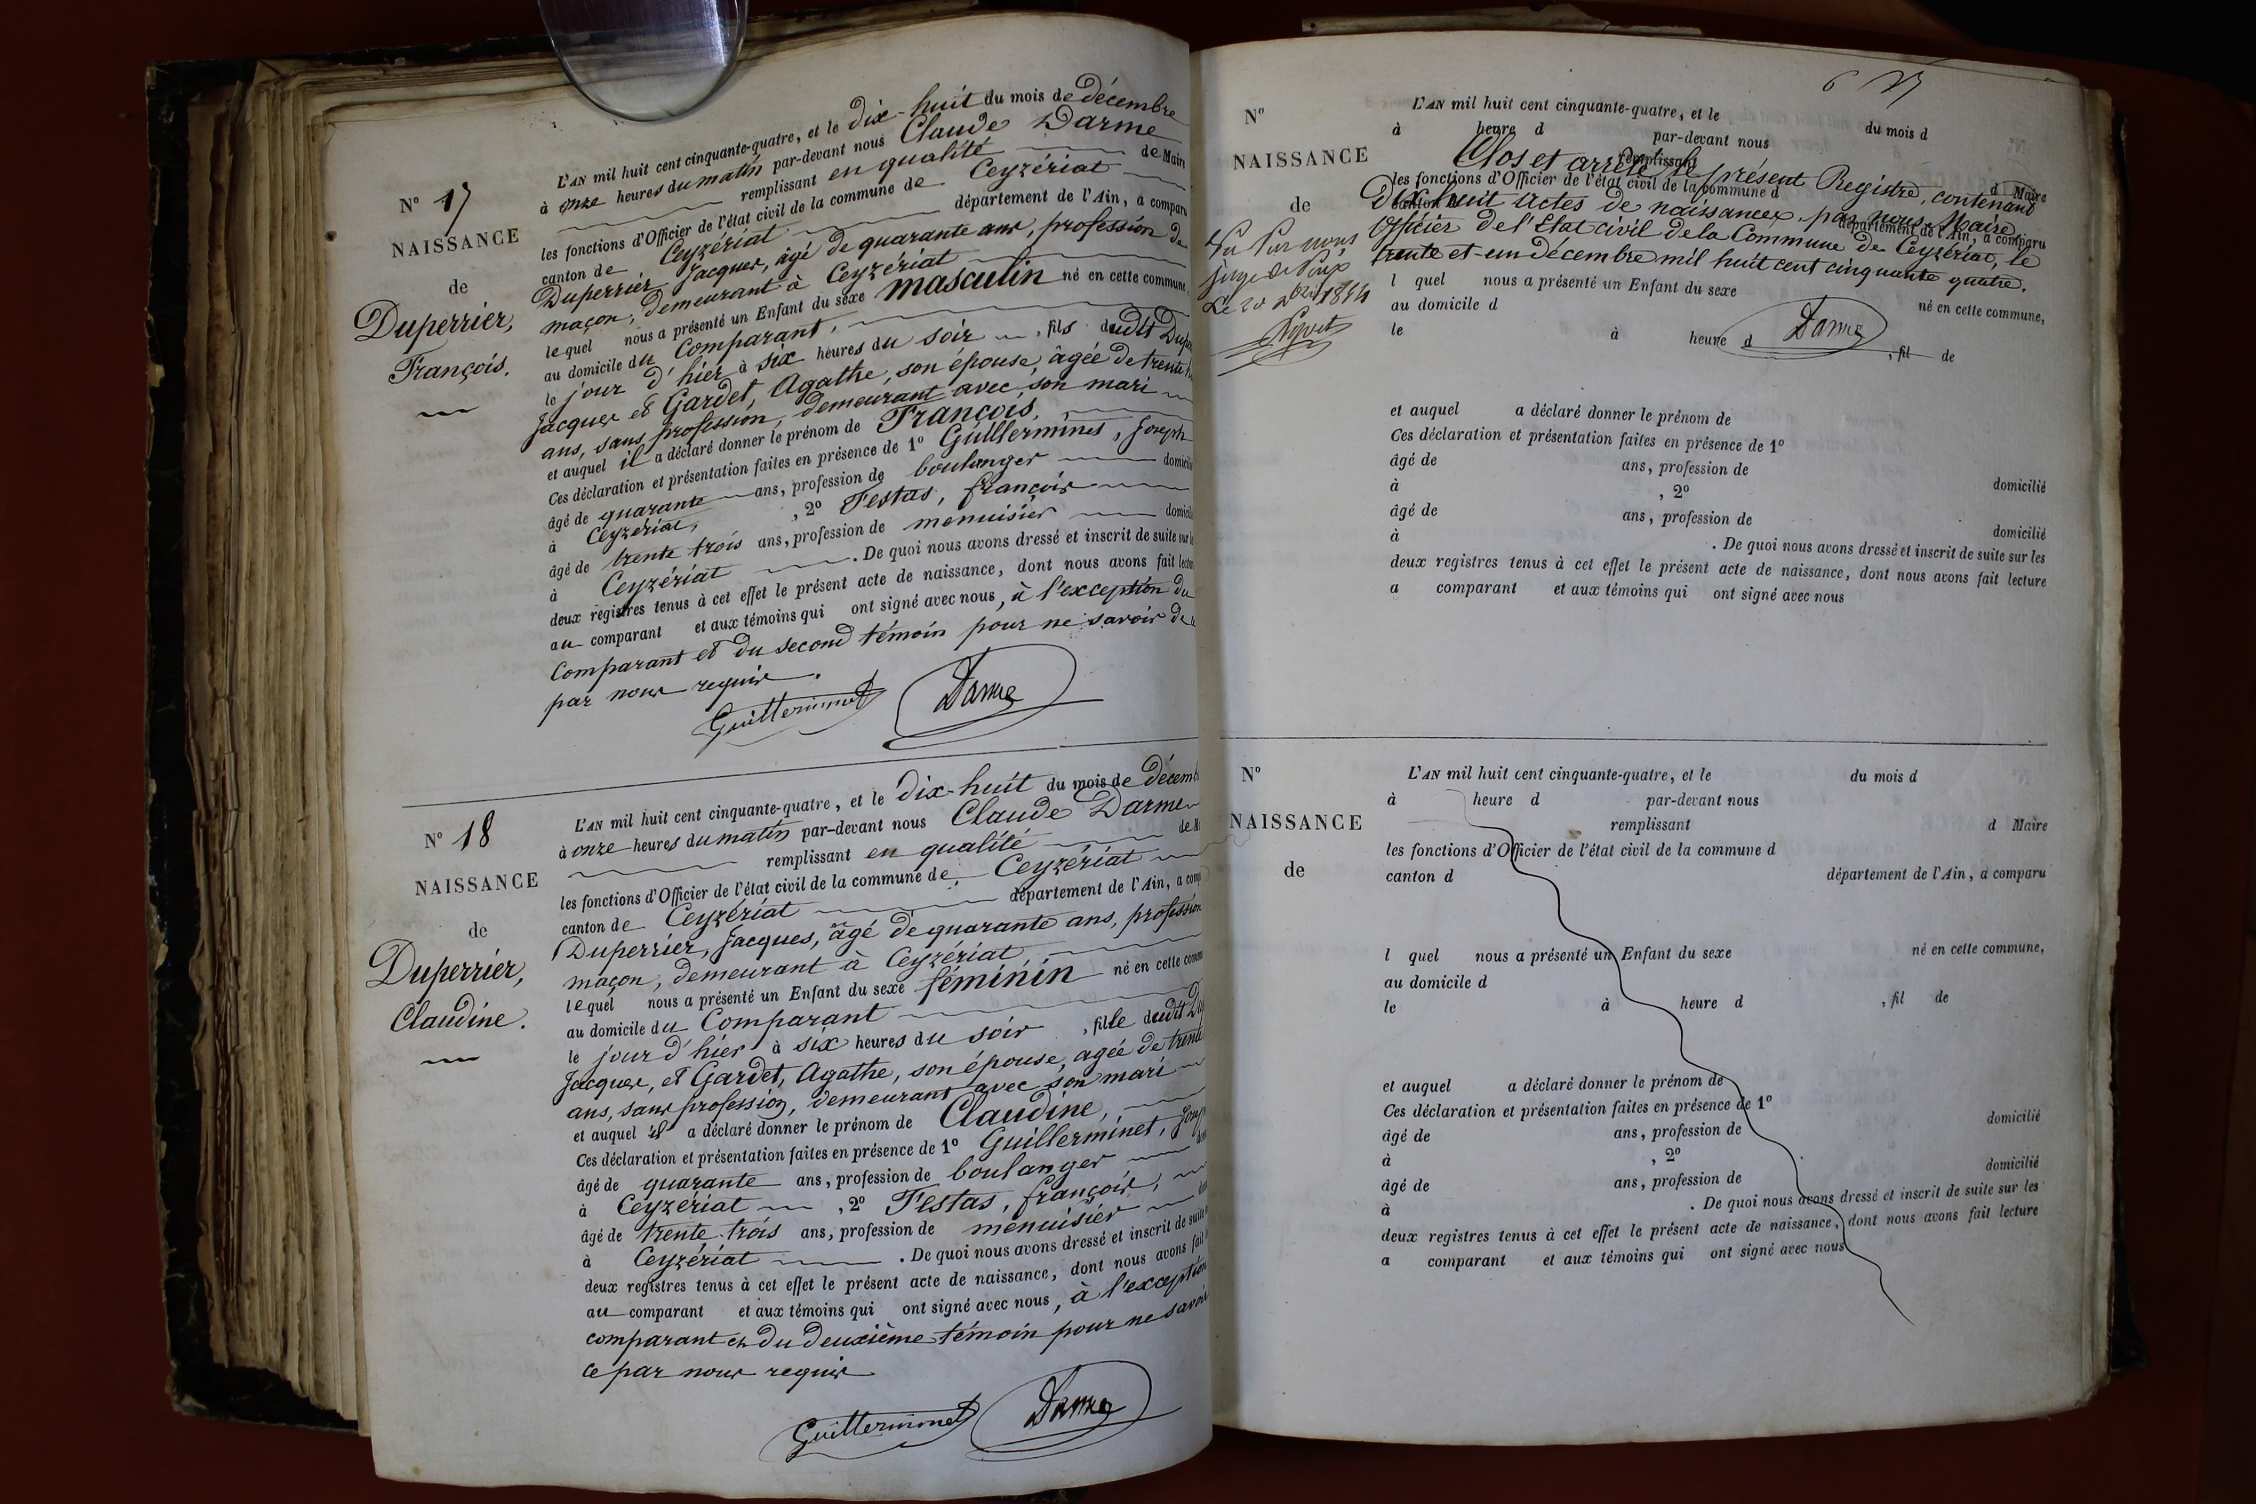 N° 17
NAISSANCE
de
Duperrier,
François.
L'AN mil huit cent cinquante-quatre, et le dix-huit du mois de décembre
à onze heures du matin par-devant nous Claude Darme
remplissant en qualité de Maire
les fonctions d'Officier de l'état civil de la commune de Ceyzériat
canton de Ceyzériat département de l'Ain, a comparu
Duperrier Jacques, âgé de quarante ans, profession de
maçon, demeurant à Ceyzériat
lequel nous a présenté un Enfant du sexe masculin né en cette commune,
au domicile du Comparant,
le jour d'hier à six heures du soir, fils dudit
Jacques et Gardet, Agathe, son épouse, âgée de trente
ans, sans profession, demeurant avec son mari
et auquel il a déclaré donner le prénom de François.
Ces déclaration et présentation faites en présence de 1° Guillerminet, Joseph
âgé de quarante ans, profession de boulanger
à Ceyzériat, , 2° Testas, françois
âgé de trente trois ans, profession de menuisier
à Ceyzériat . De quoi nous avons dressé et inscrit de suite sur
deux registres tenus à cet effet le présent acte de naissance, dont nous avons fait
au comparant et aux témoins qui ont signé avec nous, à l'exception du
Comparant et du second témoin pour ne savoir de
par nous requis.
Guillerminet Darme
N° 18
NAISSANCE
de
Duperrier,
Claudine.
L'AN mil huit cent cinquante-quatre, et le dix-huit du mois de
à onze heures du matin par-devant nous Claude Darme
remplissant en qualité de
les fonctions d'Officier de l'état civil de la commune de Ceyzériat
canton de Ceyzériat département de l'Ain, a
Duperrier, Jacques, âgé de quarante ans, profession
maçon, demeurant à Ceyzériat
lequel nous a présenté un Enfant du sexe féminin né en cette
au domicile du Comparant
le jour d'hier à six heures du soir , fille dudit
Jacques, et Gardet, Agathe, son épouse, agée de trente
ans, sans profession, demeurant avec son mari
et auquel il a déclaré donner le prénom de Claudine,
Ces déclaration et présentation faites en présence de 1° Guillerminet,
âgé de quarante ans, profession de boulanger
à Ceyzériat , 2° Testas, françois,
âgé de trente-trois ans, profession de menuisier
à Ceyzériat . De quoi nous avons dressé et inscrit de suite
deux registres tenus à cet effet le présent acte de naissance, dont nous avons fait
au comparant et aux témoins qui ont signé avec nous, à l'exception
comparant et du deuxième témoin pour ne savoir
ce par nous requis
Guillerminet Darme
6
N°
NAISSANCE
de
Vu par nous
juge de Paix
L'AN mil huit cent cinquante-quatre, et le du mois d
à heure d par-devant nous
remplissant d Maire
Clos et arrêté le présent Registre, contenant
les fonctions d'Officier de l'état civil de la commune d
Dix-huit actes de naissances, par nous, Maire,
canton d département de l'Ain, a comparu
Officier de l'Etat civil de la Commune de Ceyzériat, le
trente-et-un décembre mil huit cent cinquante quatre.
l quel nous a présenté un Enfant du sexe né en cette commune,
au domicile d
Darme
le à heure d , fil de
et auquel a déclaré donner le prénom de
Ces déclaration et présentation faites en présence de 1°
âgé de ans, profession de domicilié
à , 2°
âgé de ans, profession de domicilié
à . De quoi nous avons dressé et inscrit de suite sur les
deux registres tenus à cet effet le présent acte de naissance, dont nous avons fait lecture
a comparant et aux témoins qui ont signé avec nous
N°
NAISSANCE
de
L'AN mil huit cent cinquante-quatre, et le du mois d
à heure d par-devant nous
remplissant d Maire
les fonctions d'Officier de l'état civil de la commune d
canton d département de l'Ain, a comparu
l quel nous a présenté un Enfant du sexe né en cette commune,
au domicile d
le à heure d , fil de
et auquel a déclaré donner le prénom de
Ces déclaration et présentation faites en présence de 1°
âgé de ans, profession de domicilié
à , 2°
âgé de ans, profession de domicilié
à . De quoi nous avons dressé et inscrit de suite sur les
deux registres tenus à cet effet le présent acte de naissance, dont nous avons fait lecture
a comparant et aux témoins qui ont signé avec nous